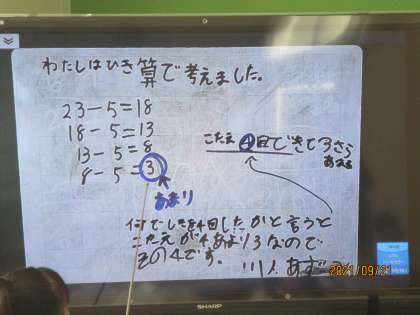 わたしはひき算で考えました。
23－5＝18
18－5＝13
13－5＝8
8－5＝3
あまり
こたえ 4日でできて3さつ
あまる
何でしきを4回したかと言うと
こたえが4あまり3なので
その4です。
2021/09/21
SHARP